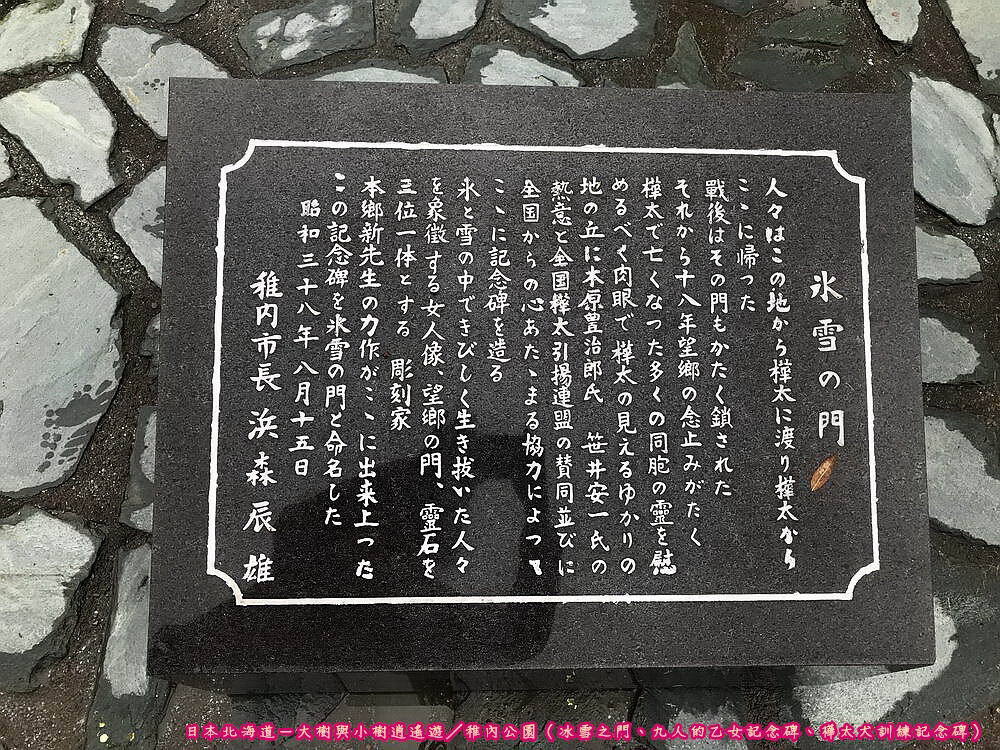 氷雪の門
人々はこの地から樺太に渡り樺太から
ここに帰った
戰後はその門もかたく鎖された
それから十八年望郷の念止みがたく
樺太で亡くなつた多くの同胞の霊を慰
めるべく肉眼で樺太の見えるゆかりの
地の丘に木原豊治郎氏 笹井安一氏の
熱意と全国樺太引揚連盟の賛同並びに
全国からの心あたゝまる協力によって
こゝに記念碑を造る
氷と雪の中できびしく生き抜いた人々
を象徴する女人像、望郷の門、霊石を
三位一体とする 彫刻家
本郷新先生の力作がこゝに出来上った
この記念碑を氷雪の門と命名した
昭和三十八年八月十五日
稚内市長 浜森辰雄
日本北海道－大樹與小樹逍遙遊／稚內公園（冰雪之門、九人的乙女記念碑、樺太犬訓練記念碑）